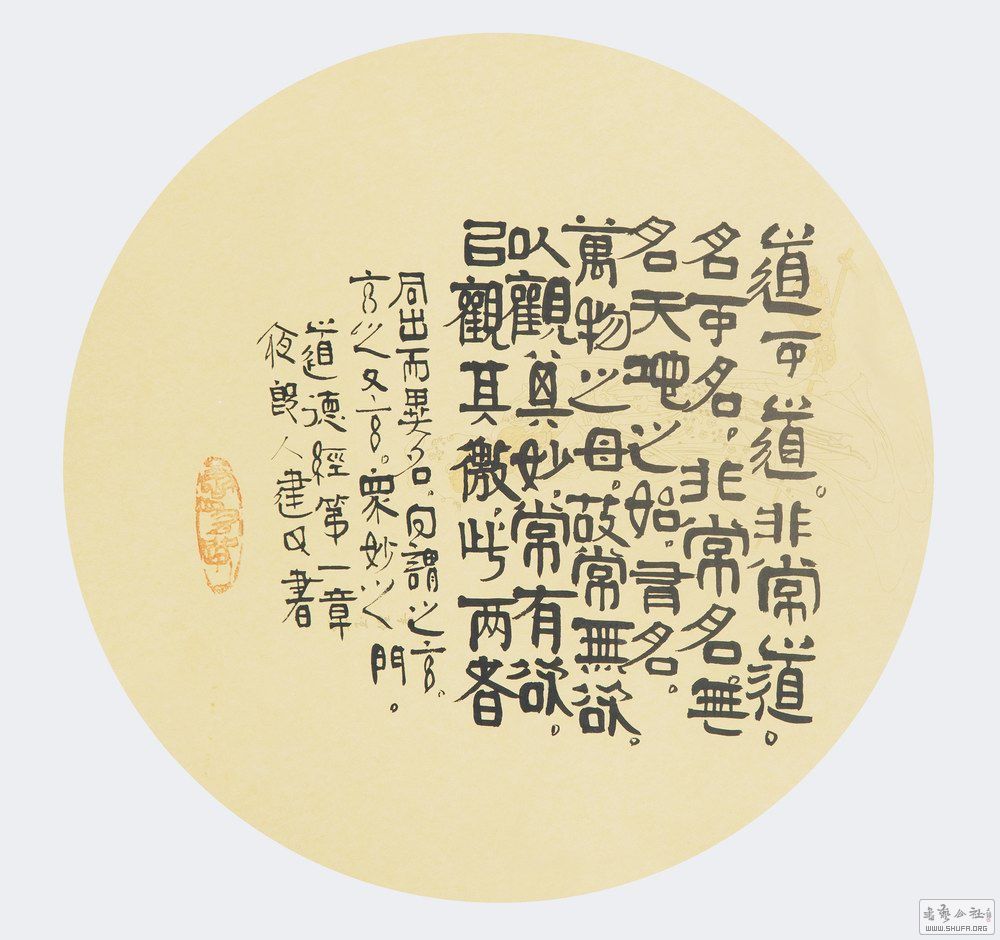 道可道。非常道。
名可名，非常名。無
名天地之始。有名。
萬物之母。故常無欲。
以觀其妙。常有欲。
㠯觀其徼。此两者
同出而異名。同謂之玄。
玄之又玄。衆妙之門。
道德經第一章
夜郎人建民書
書藝公社
WWW.SHUFA.ORG